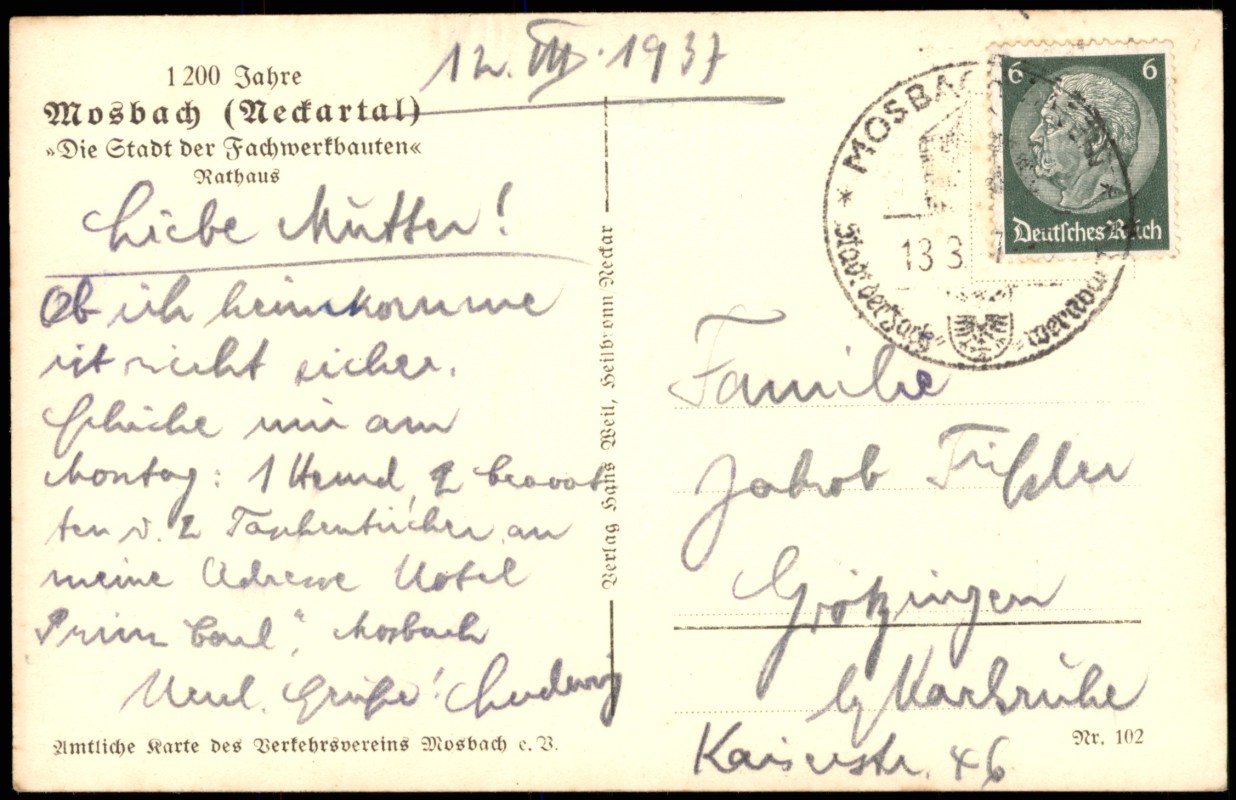 12. III. 1937
1200 Jahre
Mosbach (Neckartal)
»Die Stadt der Fachwerkbauten«
Rathaus
Liebe Mutter!
Ob ich heimkomme
ist nicht sicher.
Schicke mir am
Montag: 1 Hemd, 2
ten u. 2 Taschentücher an
meine Adresse Hotel
Prinz Carl", Mosbach
Herzl. Grüße! Ludwig
Amtliche Karte des Verkehrsvereins Mosbach e. V.
Verlag Hans Weil, Heilbronn Neckar
6 6
Deutsches Reich
MOSBACH
13 3 7
Stadt der Fach
Familie
Jakob
Grötzingen
b/Karlsruhe
Kaiserstr. 46
Nr. 102